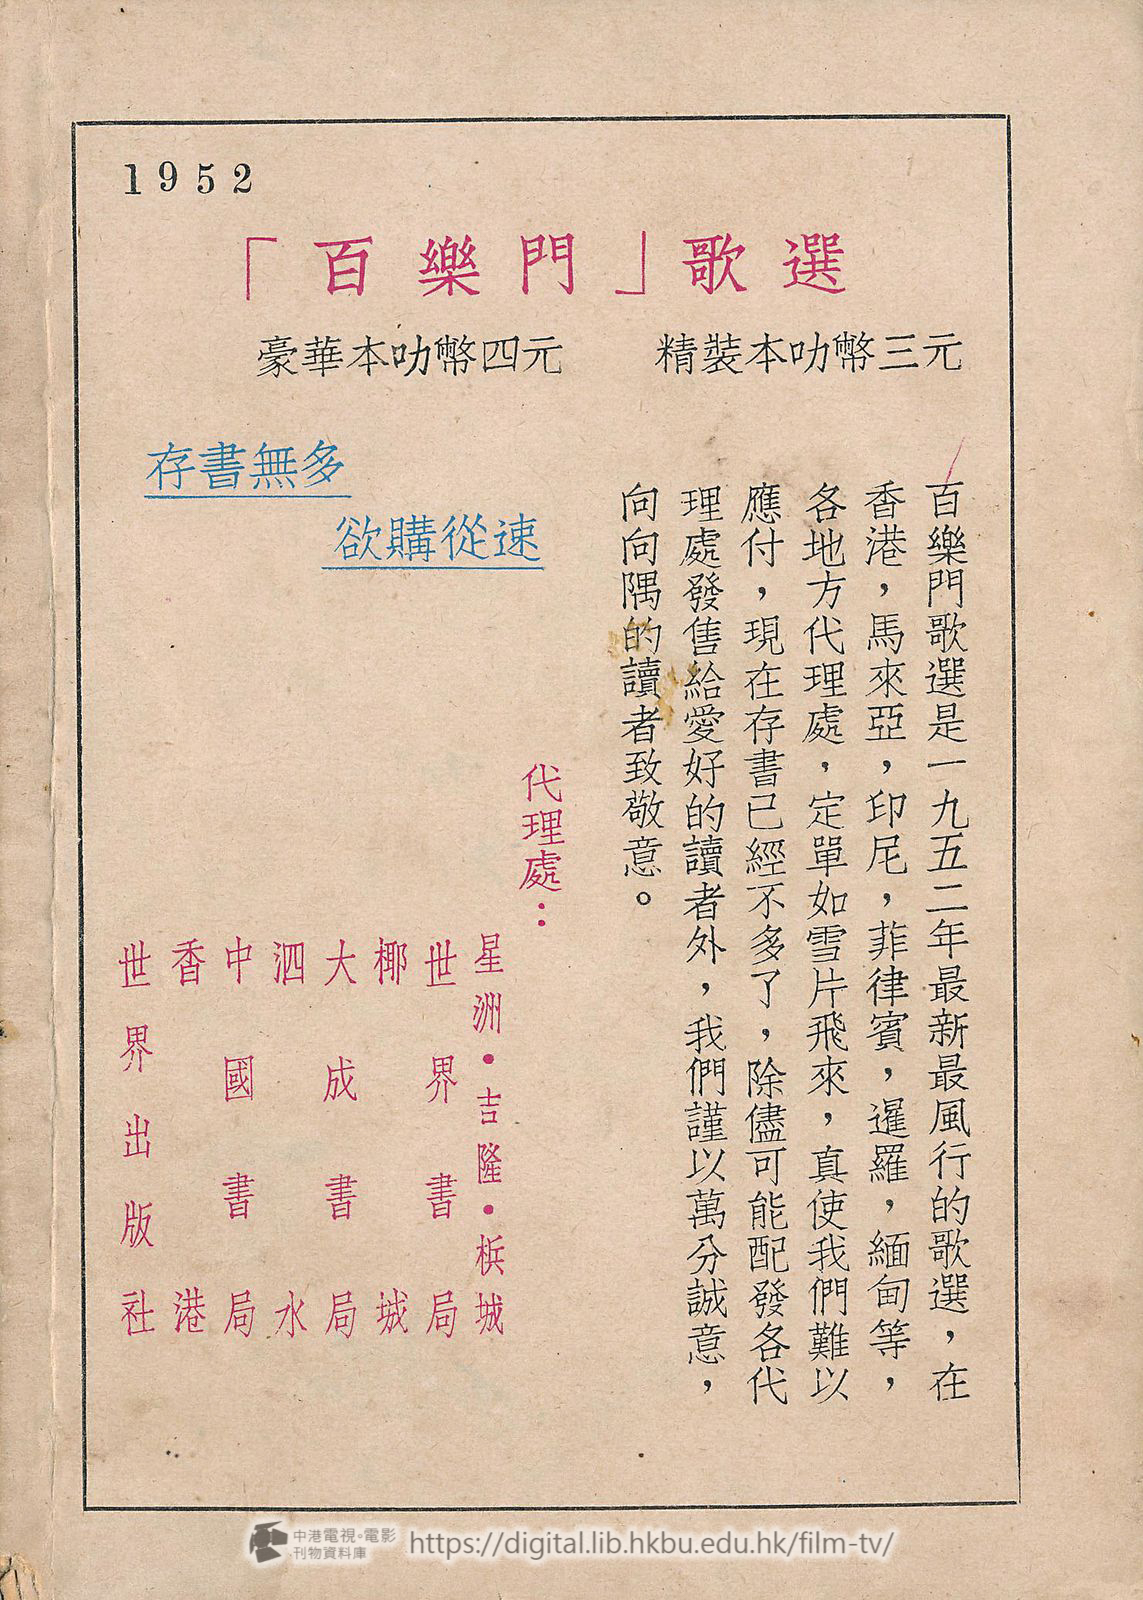 1952
「百樂門」歌選
豪華本叻幣四元　精裝本叻幣三元
存書無多
欲購從速
百樂門歌選是一九五二年最新最風行的歌選，在
香港，馬來亞，印尼，菲律賓，暹羅，緬甸等，
各地方代理處，定單如雪片飛來，真使我們難以
應付，現在存書已經不多了，除儘可能配發各代
理處發售給愛好的讀者外，我們謹以萬分誠意，
向向隅的讀者致敬意。
代理處：
星洲・吉隆・梹城
世界書局
椰城
大成書局
泗水
中國書局
香港
世界出版社
中港電視・電影
刊物資料庫
https://digital.lib.hkbu.edu.hk/film-tv/